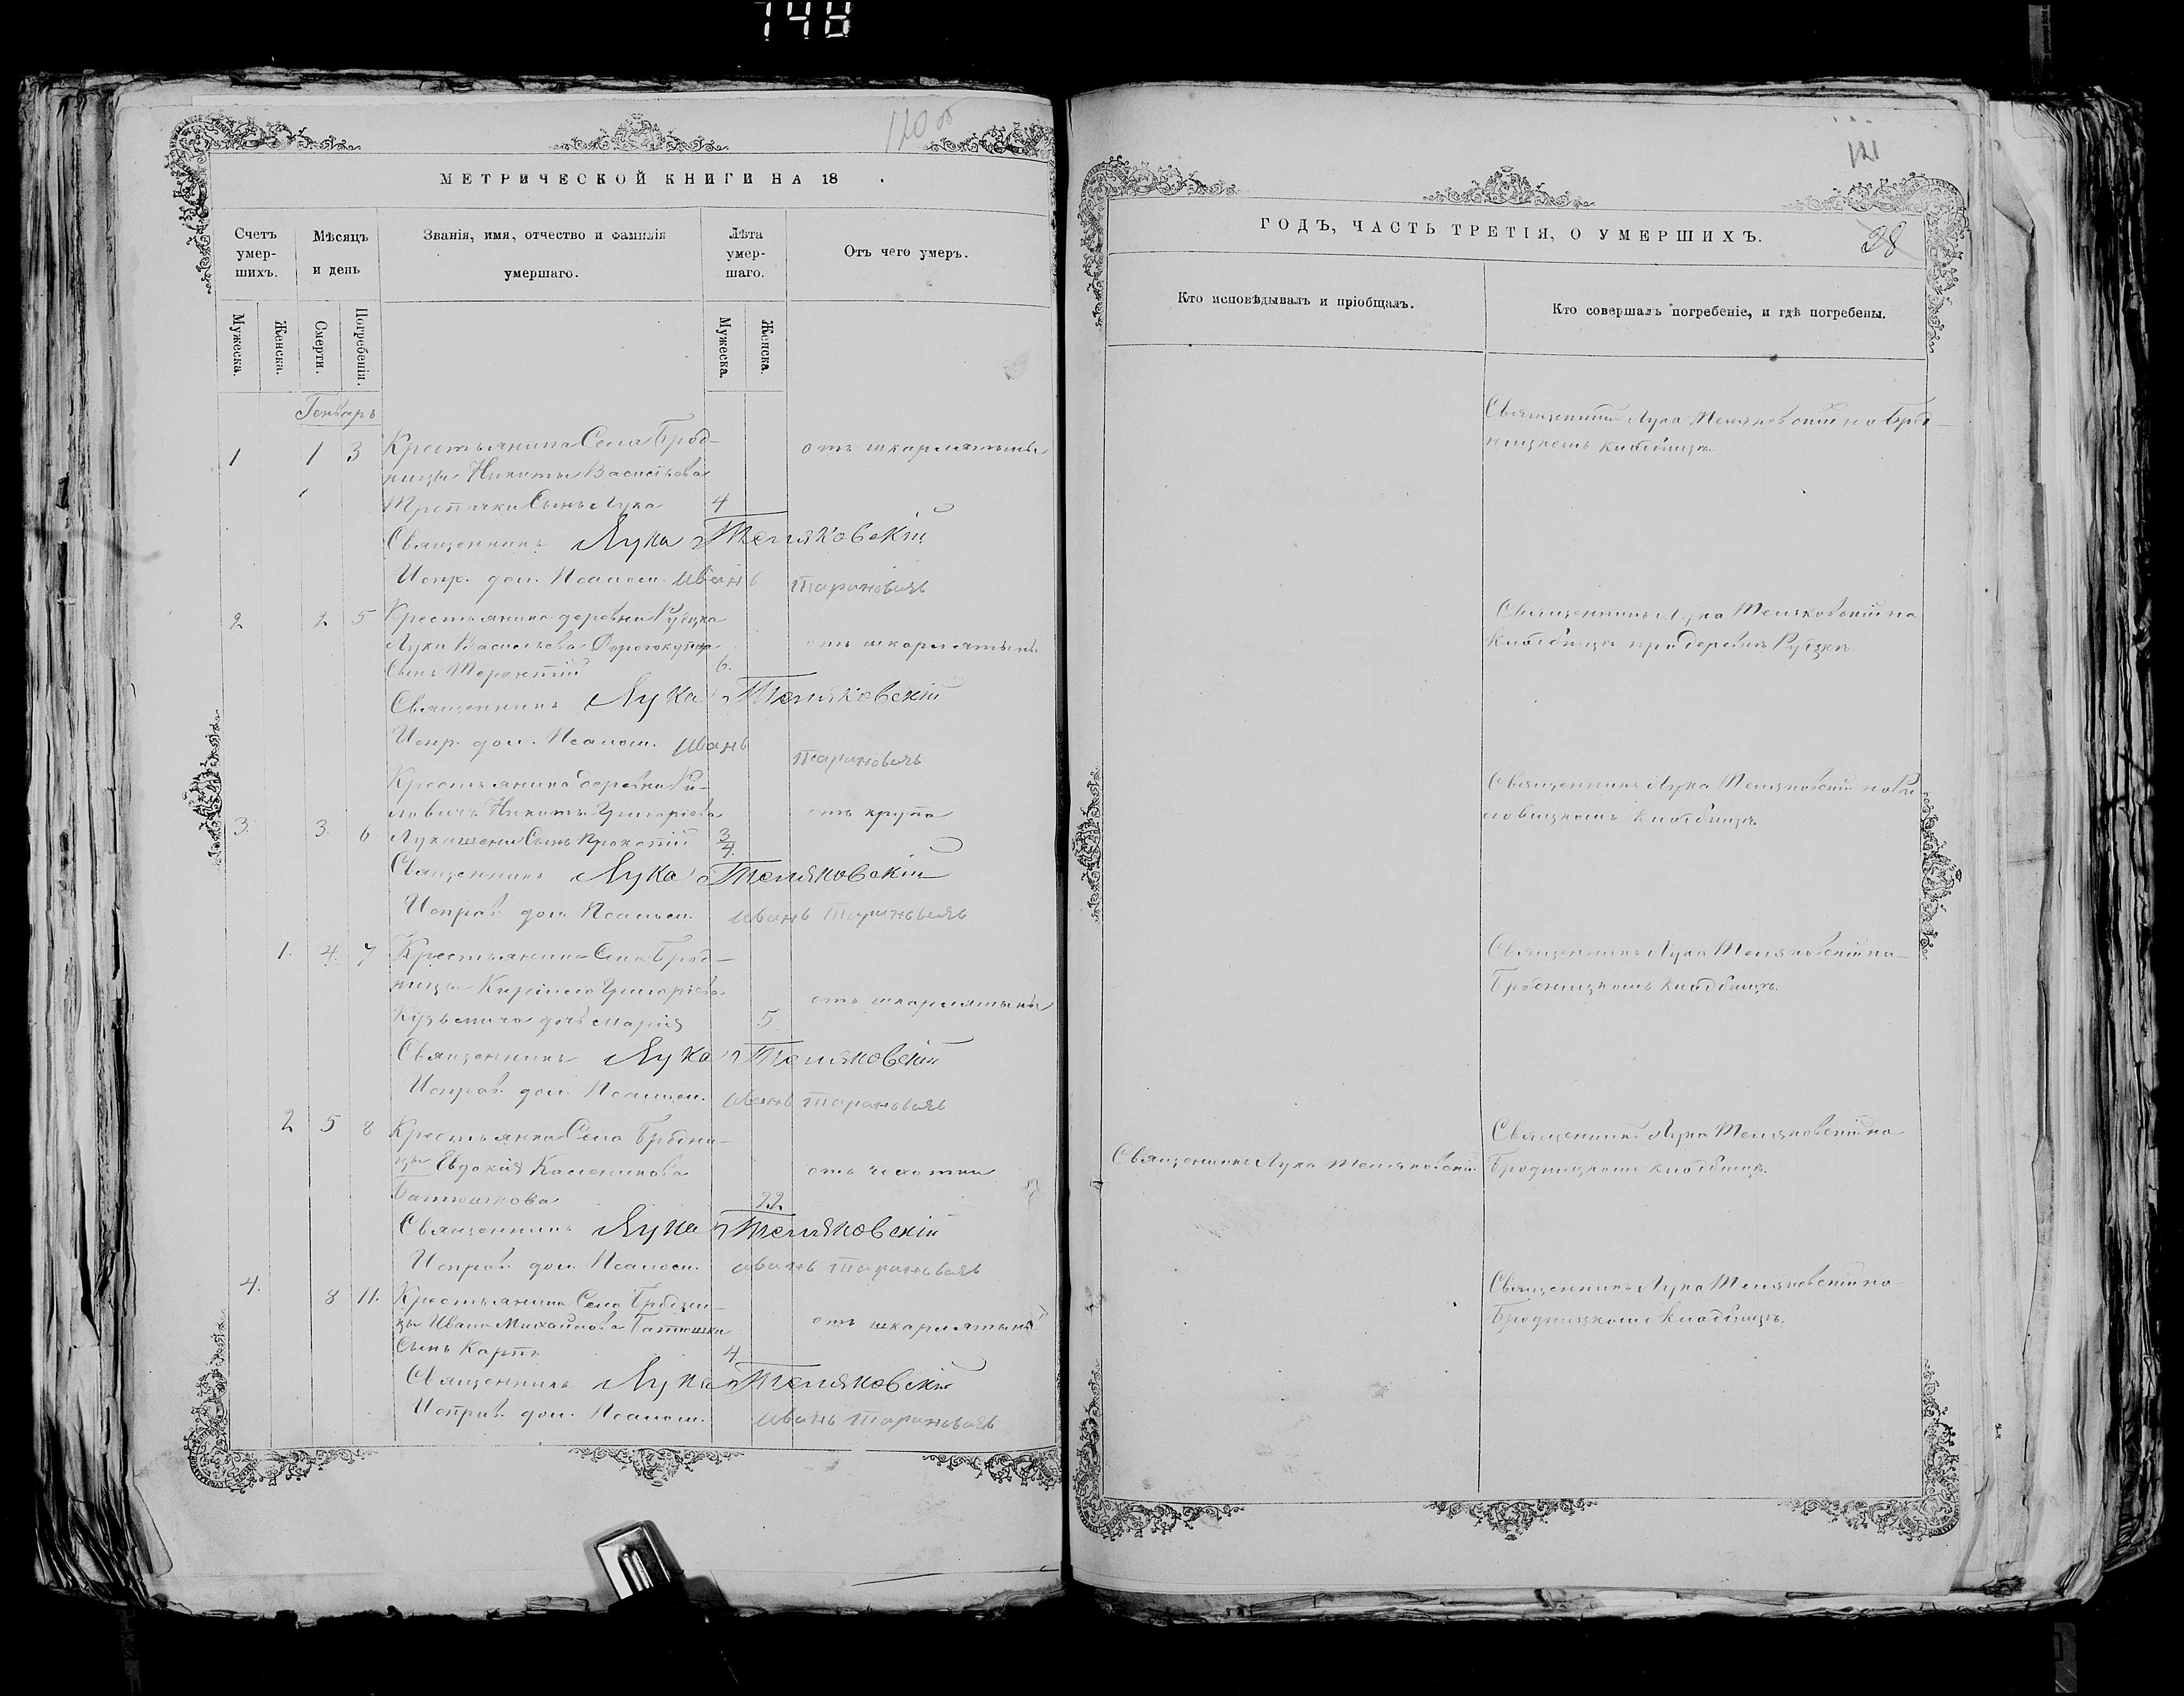 748
120 об
МЕТРИЧЕСКОЙ КНИГИ НА 18
Счетъ умер-шихъ.
Мѣсяцъ и день
Званія, имя, отчество и фамилія умершаго.
Лѣта умер-шаго.
Отъ чего умеръ.
Мужеска.
Женска.
Смерти.
Погребенія.
Мужеска.
Женска.
Генварь
1 1 3 Крестьянина Села Брод-
ницы Никиты Васильева отъ шкарлятыны
Сынъ Лука 4
Священникъ Лука Теляковскій
Испр. дол. Псалом. Иванъ Тарановичъ
2 2 5 Крестьянина деревни Рубцка
Луки Васильева отъ шкарлятыны
Сынъ Терентій 6.
Священникъ Лука Теляковскій
Испр. дол. Псалом. Иванъ Тарановичъ
Крестьянина деревни
Никиты Григоріева отъ крупа
3. 3. 6 Лукашеви Сынъ Прокопій 3/4
Священникъ Лука Теляковскій
Исправ. дол. Псалом. Иванъ Тарановичъ
1. 4. 7 Крестьянина Села Брод-
ницы Кирилла Григоріева отъ шкарлятыны
Кузьмича дочь Марія 5
Священникъ Лука Теляковскій
Исправ. дол. Псалом. Иванъ Тарановичъ
2 5 8 Крестьянка Села Бродни-
цы Евдокія отъ чахотки
Батюшкова 22.
Священникъ Лука Теляковскій
Исправ. дол. Псалом. Иванъ Тарановичъ
4. 8 11. Крестьянина Села Бродни-
цы Ивана Михайлова Батюшки отъ шкарлятыны
Сынъ Карпъ 4
Священникъ Лука Теляковскій
Исправ. дол. Псалом. Иванъ Тарановичъ
121
ГОДЪ, ЧАСТЬ ТРЕТІЯ, О УМЕРШИХЪ.
28
Кто исповѣдывалъ и пріобщалъ.
Кто совершалъ погребеніе, и гдѣ погребены.
Священникъ Лука Теляковскій на Брод-
ницкомъ кладбищѣ.
Священникъ Лука Теляковскій на
кладбищѣ при деревнѣ Рубцкѣ
Священникъ Лука Теляковскій на
кладбищѣ.
Священникъ Лука Теляковскій на
Бродницкомъ кладбищѣ.
Священникъ Лука Теляковскій
Священникъ Лука Теляковскій на
Бродницкомъ кладбищѣ.
Священникъ Лука Теляковскій на
Бродницкомъ кладбищѣ.